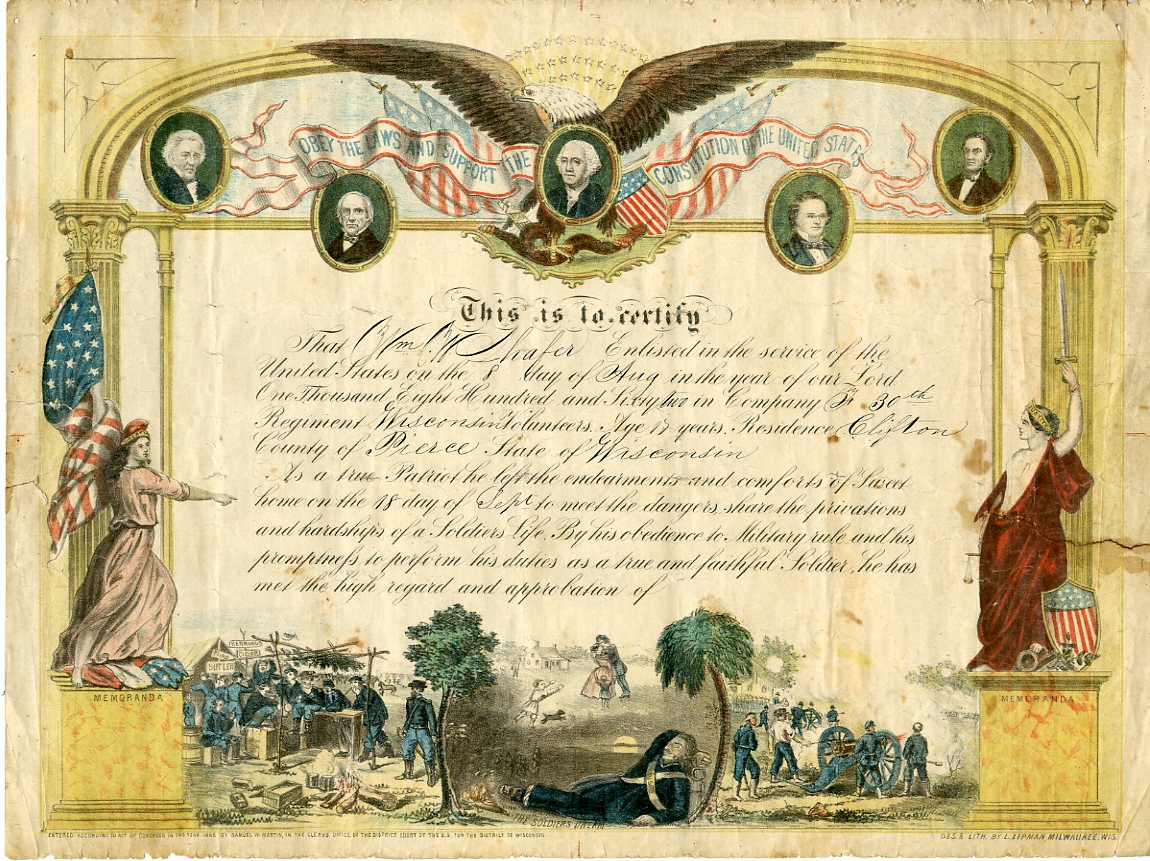 OBEY THE LAWS AND SUPPORT THE CONSTITUTION OF THE UNITED STATES
This is to certify
That Wm W Shafer Enlisted in the service of the
United States on the 8 day of Aug in the year of our Lord
One Thousand Eight Hundred and Sixty two in Company F 30th
Regiment Wisconsin Volunteers. Age 17 years. Residence Clifton
County of Pierce State of Wisconsin
As a true Patriot he left the endearments and comforts of Sweet
home on the 18 day of Sept to meet the dangers, share the privations
and hardships of a Soldiers Life. By his obedience to Military rule and his
promptness to perform his duties as a true and faithful Soldier, he has
met the high regard and approbation of
SUTLER
MEMORANDA
MEMORANDA
THE SOLDIERS DREAM
ENTERED ACCORDING TO ACT OF CONGRESS IN THE YEAR 1862 BY SAMUEL W. MARTIN, IN THE CLERKS OFFICE OF THE DISTRICT COURT OF THE U.S. FOR THE DISTRICT OF WISCONSIN
DES. & LITH. BY L. LIPMAN MILWAUKEE, WIS.